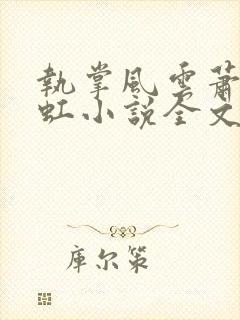 執掌風雲蕭
虹小說全文
库尔策